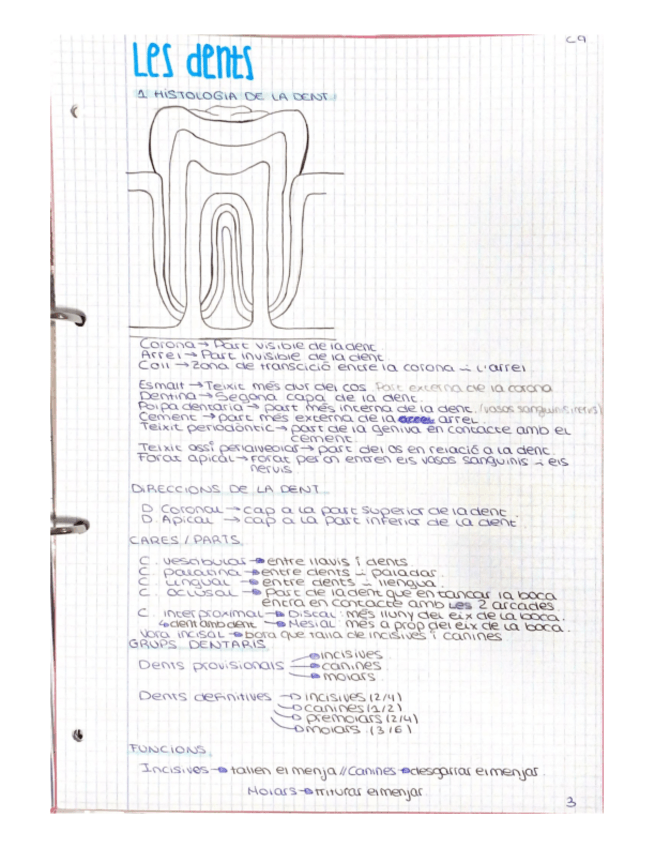 C9
Les dents
1 HISTOLOGIA DE LA DENT
Corona → Part visible de la dent
Arrel → Part invisible de la dent
Coll → Zona de transcició entre la corona i l'arrel
Esmalt → Teixit més dur del cos. Part externa de la corona
Dentina → Segona capa de la dent.
Polpa dentària → part més interna de la dent. (vasos sanguinis, nervis)
Cement → part més externa de la arrel.
Teixit periodòntic → part de la geniva en contacte amb el
cement.
Teixit ossi perialveolar → part del os en relació a la dent.
Forat apical → forat per on entren els vasos sanguinis i els
nervis
DIRECCIONS DE LA DENT
D. Coronal → cap a la part superior de la dent.
D. Apical → cap a la part inferior de la dent.
CARES / PARTS.
C. vestibular → entre llavis i dents
C. palatina → entre dents i paladar.
C. Lingual → entre dents i llengua.
C. oclusal → Part de la dent que en tancar la boca
entra en contacte amb les 2 arcades.
C. interproximal → Discal: més lluny del eix de la boca.
↳ dent amb dent → Mesial: més a prop del eix de la boca.
Vora incisal → bora que talla de incisives i canines
GRUPS DENTARIS.
incisives
Dents provisionals → canines
molars
Dents definitives → incisives (2/4)
canines (1/2)
premolars (2/4)
molars (3/6)
FUNCIONS.
Incisives → tallen el menja // Canines → desgarrar el menjar.
Molars → trituras el menjar
3